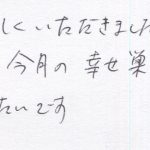 しくいただきました
今月の 幸せ 巣
たいです